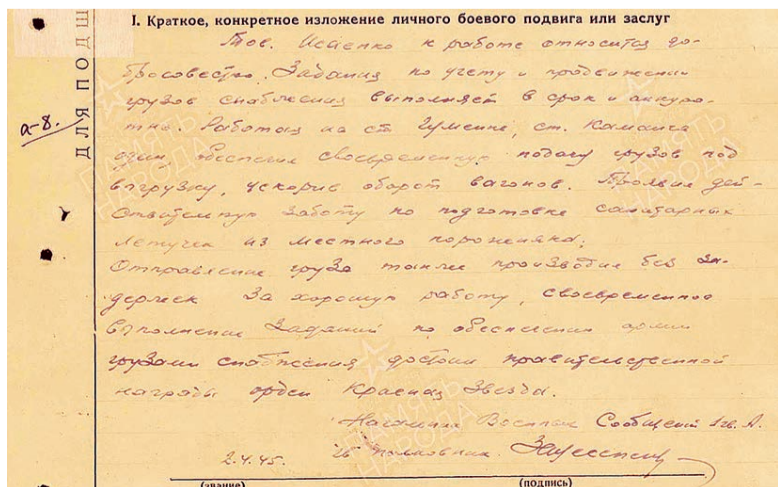 I. Краткое, конкретное изложение личного боевого подвига или заслуг
Тов. Исаенко к работе относится до-
бросовестно. Задания по учету и продвижению
грузов снабжения выполняет в срок и аккура-
тно. Работая на ст. Гуменне, ст.
один, обеспечил своевременную подачу грузов под
выгрузку, ускорив оборот вагонов. Проявил дей-
ствительную заботу по подготовке санитарных
летучек из местного порожняка;
Отправление груза также производил без за-
держек. За хорошую работу, своевременное
выполнение заданий по обеспечению армии
грузами снабжения достоин правительственной
награды орден Красная Звезда.
Начальник Военных Сообщений 1 гв. А.
2.4.45. гв. полковник
(звание) (подпись)
ДЛЯ ПОДШ
а-8.
ПАМЯТЬ НАРОДА
ПАМЯТЬ НАРОДА